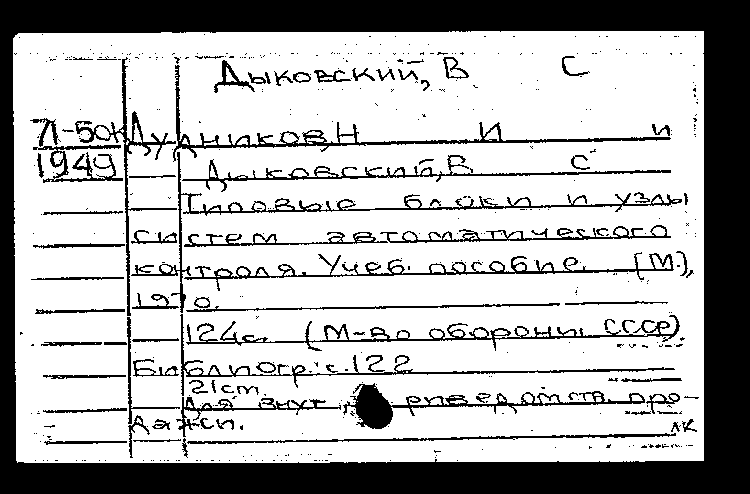 Дыковский, В С
71-50к Дудников, Н И и
1949 Дыковский, В С
Типовые блоки и узлы
систем автоматического
контроля. Учеб. пособие. [М.],
1970.
124с. (М-во обороны СССР).
Библиогр.: с.122
21cm
Для внут риведомств. про-
дажи.
лк